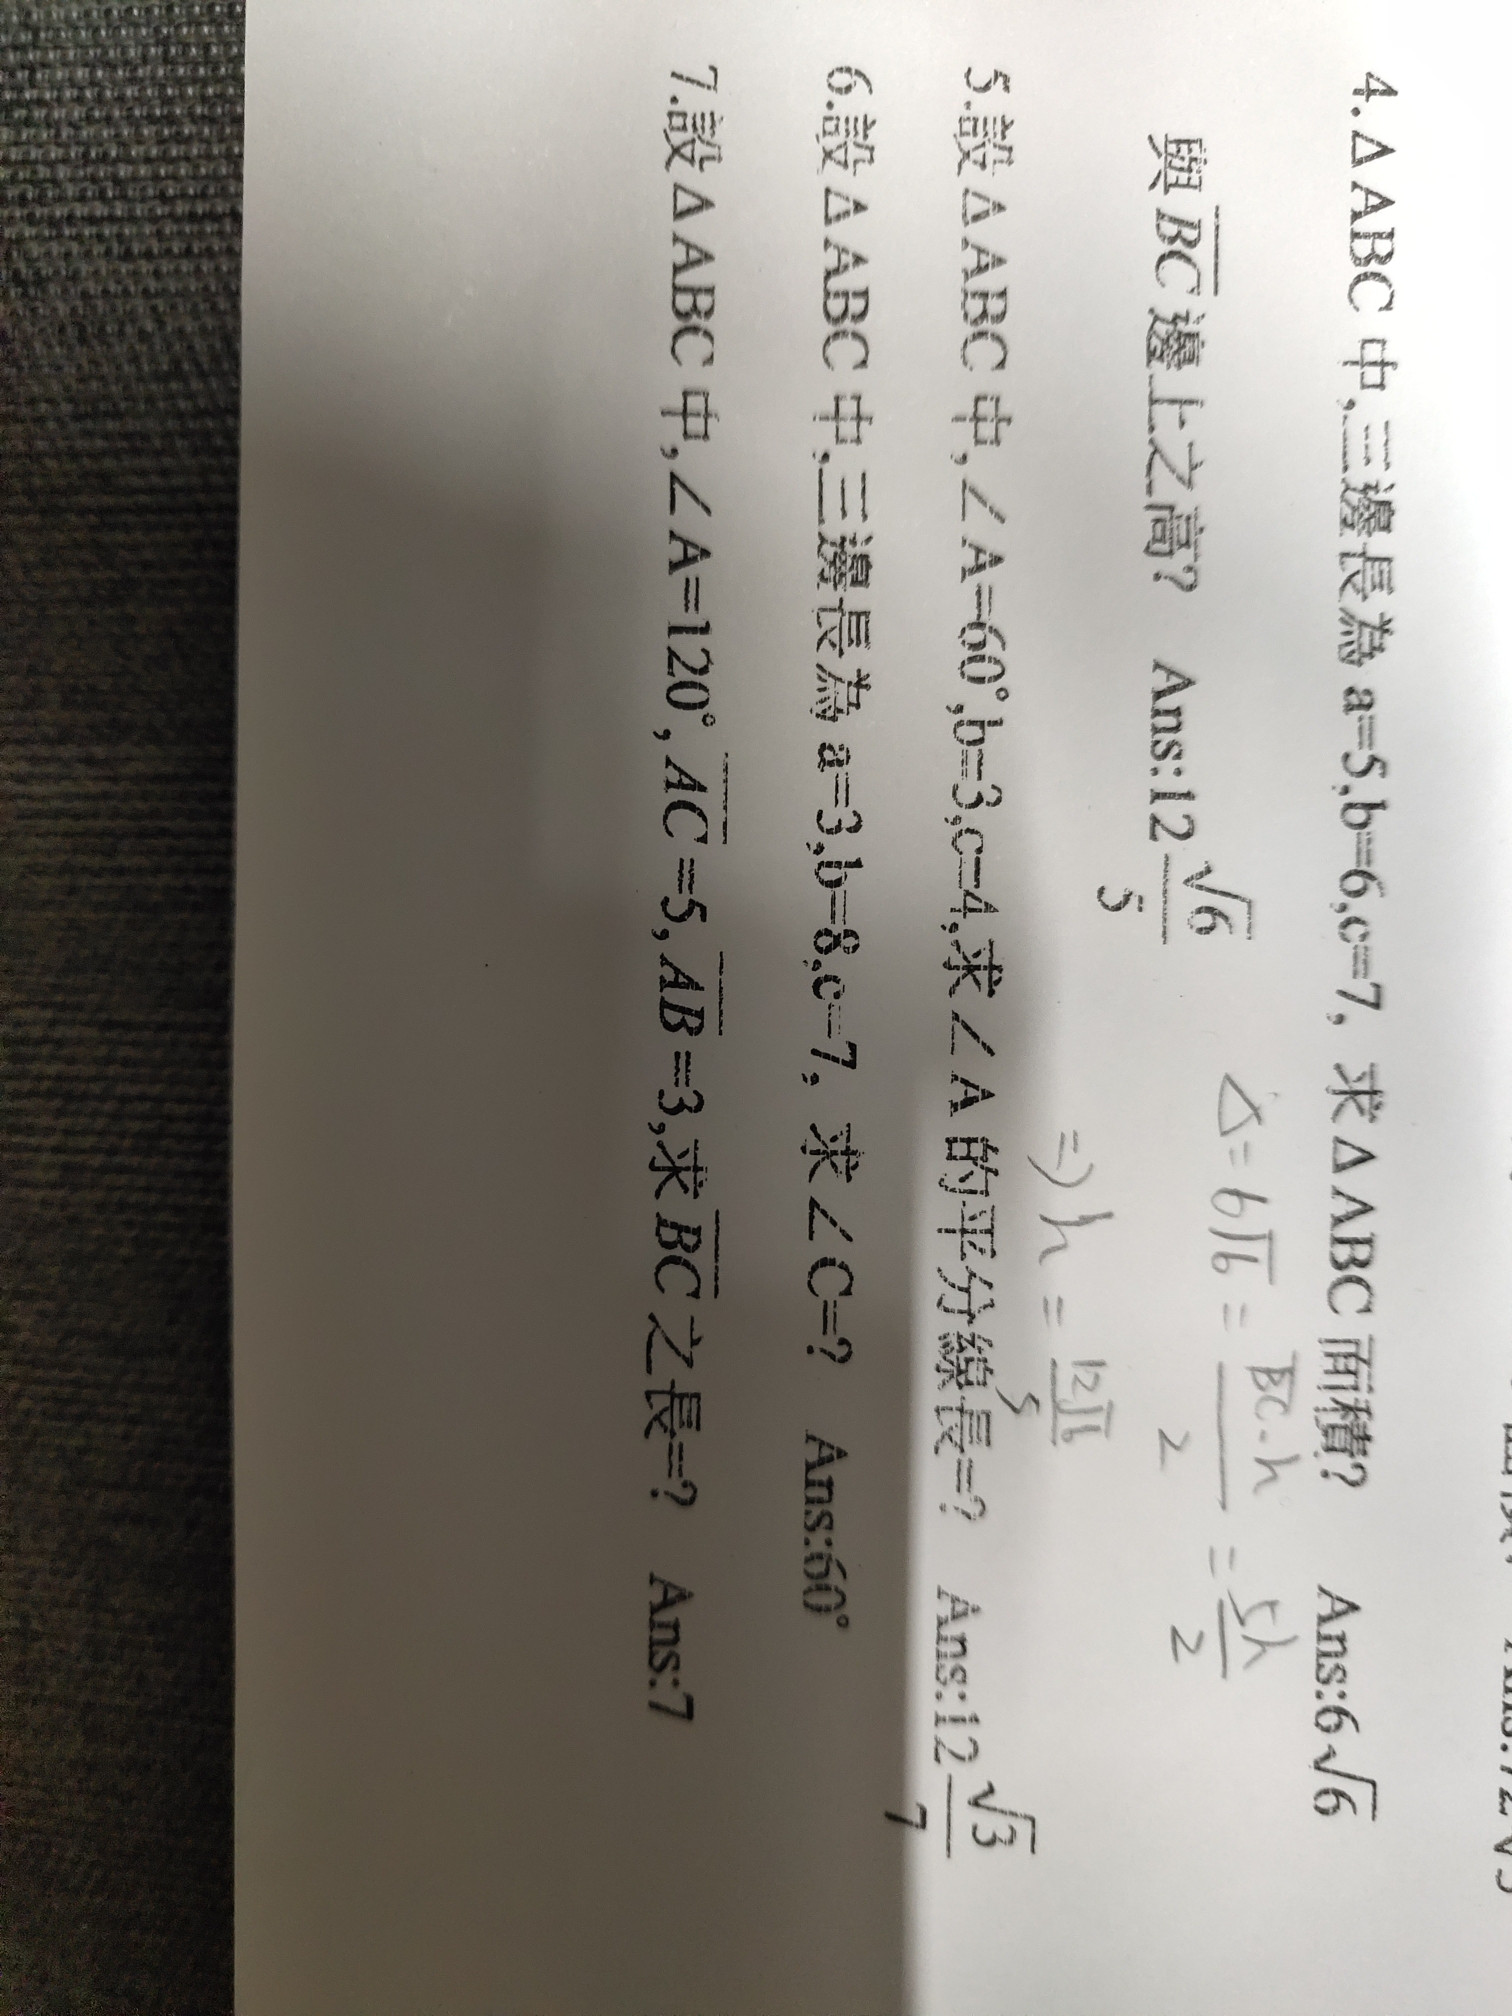 4.△ABC 中,三邊長為 a=5,b=6,c=7, 求△ABC 面積? Ans:6√6
與 BC 邊上之高? Ans:12 √6/5
△=6√6 = BC·h/2 = 5h/2
=> h = 12√6/5
5.設△ABC 中,∠A=60°,b=3,c=4,求∠A 的平分線長=? Ans:12 √3/7
6.設△ABC 中,三邊長為 a=3,b=8,c=7, 求∠C=? Ans:60°
7.設△ABC 中,∠A=120°, AC=5, AB=3,求 BC 之長=? Ans:7